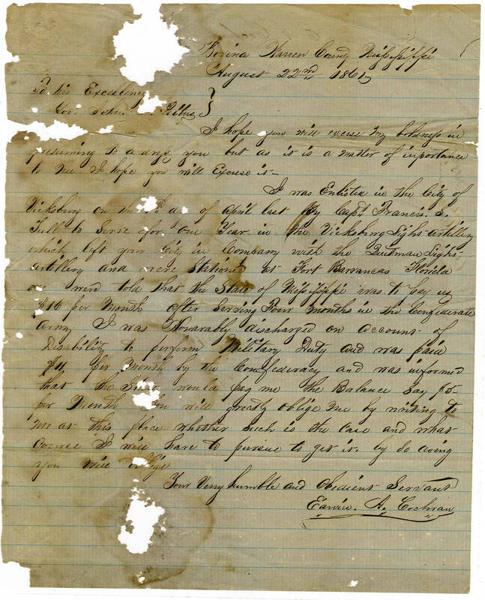 Bovina Warren County Mississippi
August 22nd 1861
To his Excellency
Gov. John Pettus }
I hope you will excuse my boldness in
presuming to you but as it is a matter of importance
to me I hope you will Excuse it-
I was Enlisted in the City of
Vicksburg on the of April last by Capt Francis S.
to serve for One Year in the Vicksburg Light Artillery
which left your City in Company with the Quitman Light
Artillery and were Stationed at Fort Barrancas Florida
were told that the State of Mississippi was to pay us
$16 per Month After Serving Four months in the Confederate
Army I was Honorably discharged on account of
disability to perform Military Duty and was paid
$11 per Month by the Confederacy and was informed
that the would pay me the Balance say
per Month you will greatly oblige me by writing to
me at this place whether such is the case and what
Course I will have to pursue to get it. by so doing
you will oblige
Your Very humble and Obedient Servant
Cochran